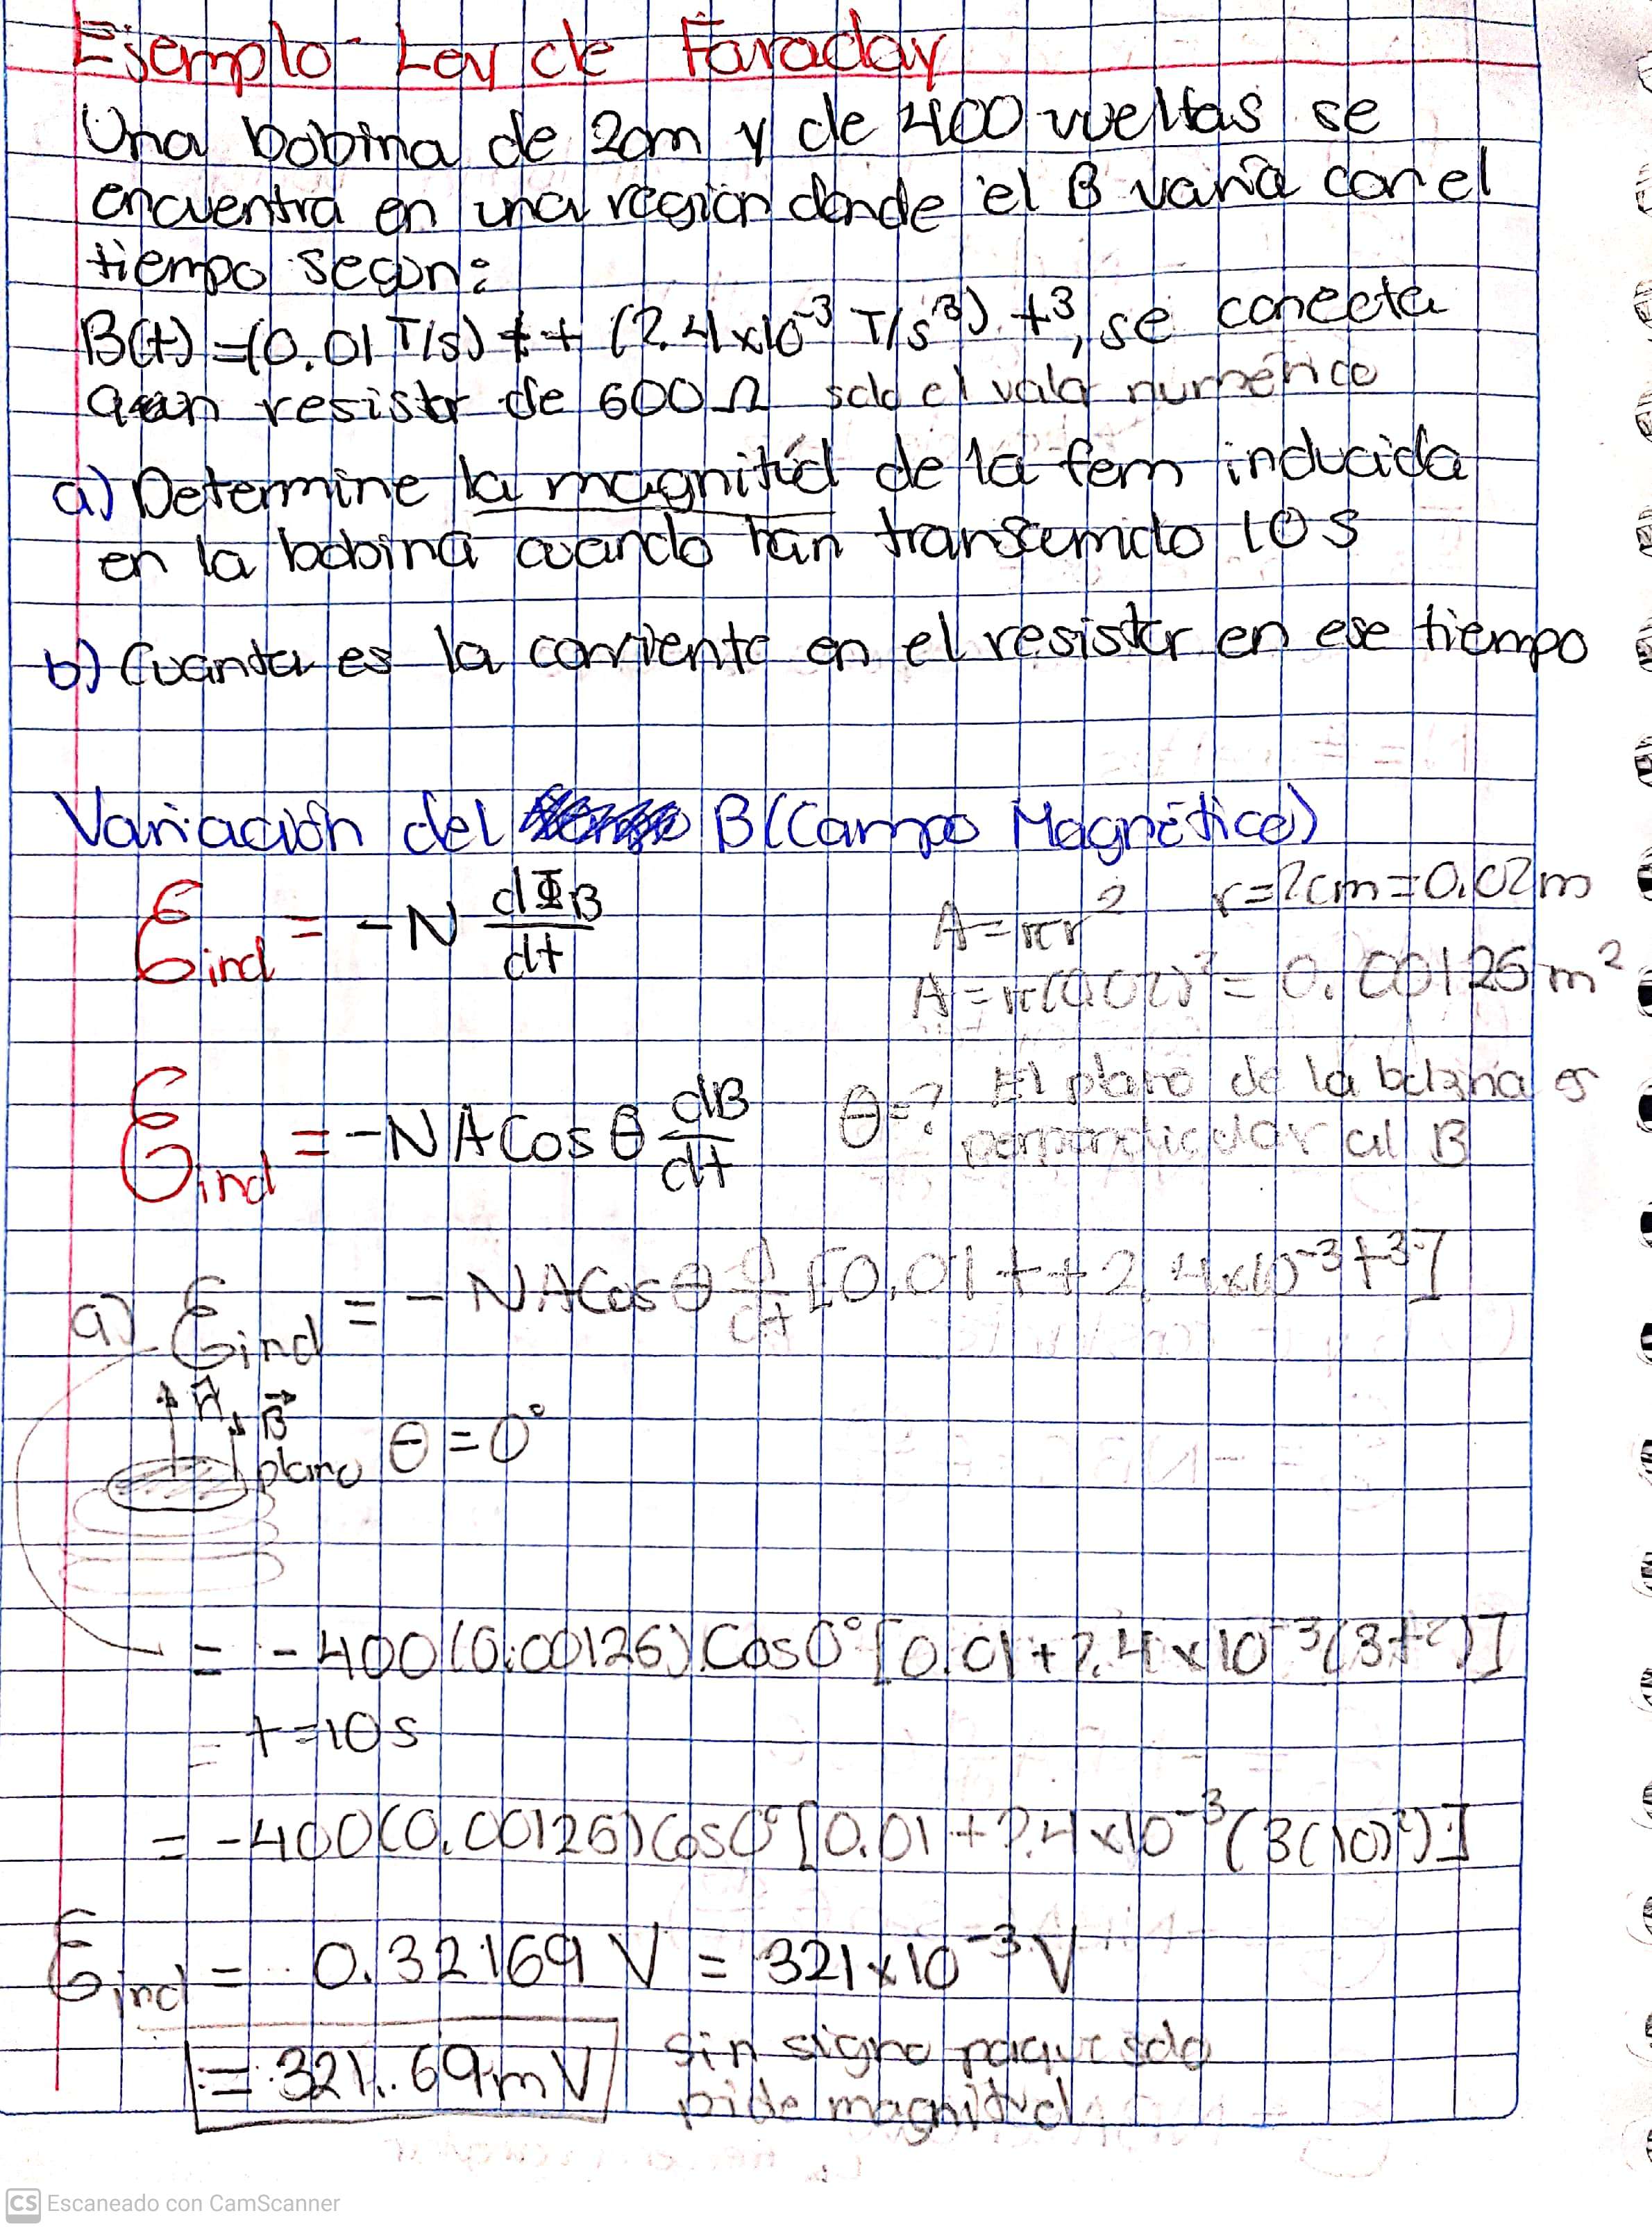 Ejemplo - Ley de Faraday
Una bobina de 2cm y de 400 vueltas se
encuentra en una región donde el B varía con el
tiempo según:
B(t) = (0.01 T/s) t + (2.4x10⁻³ T/s³) t³, se conecta
a un resistor de 600 Ω solo el valor numérico
a) Determine la magnitud de la fem inducida
en la bobina cuando han transcurrido 10 s
b) Cuánta es la corriente en el resistor en ese tiempo
Variación del B (Campo Magnético)
Ɛind = -N dΦB/dt
A = πr² r = 2cm = 0.02m
A = π(0.02)² = 0.00126 m²
Ɛind = -NACosθ dB/dt θ=? El plano de la bobina es
perpendicular al B
a) Ɛind = - NACosθ d/dt [0.01t + 2.4x10⁻³t³]
n B
plano θ = 0°
= -400(0.00126)Cos0°[0.01+2.4x10⁻³(3t²)]
t=10s
= -400(0.00126)Cos0°[0.01+2.4x10⁻³(3(10)²)]
Ɛind = 0.32169 V = 321x10⁻³ V
= 321.69mV sin signo porque solo
pide magnitud
CS Escaneado con CamScanner